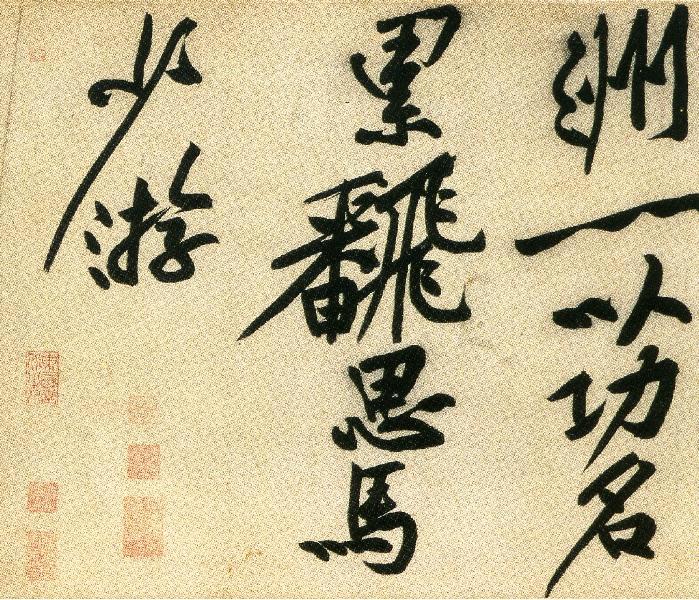 洲一以功名
累翻思馬
少游